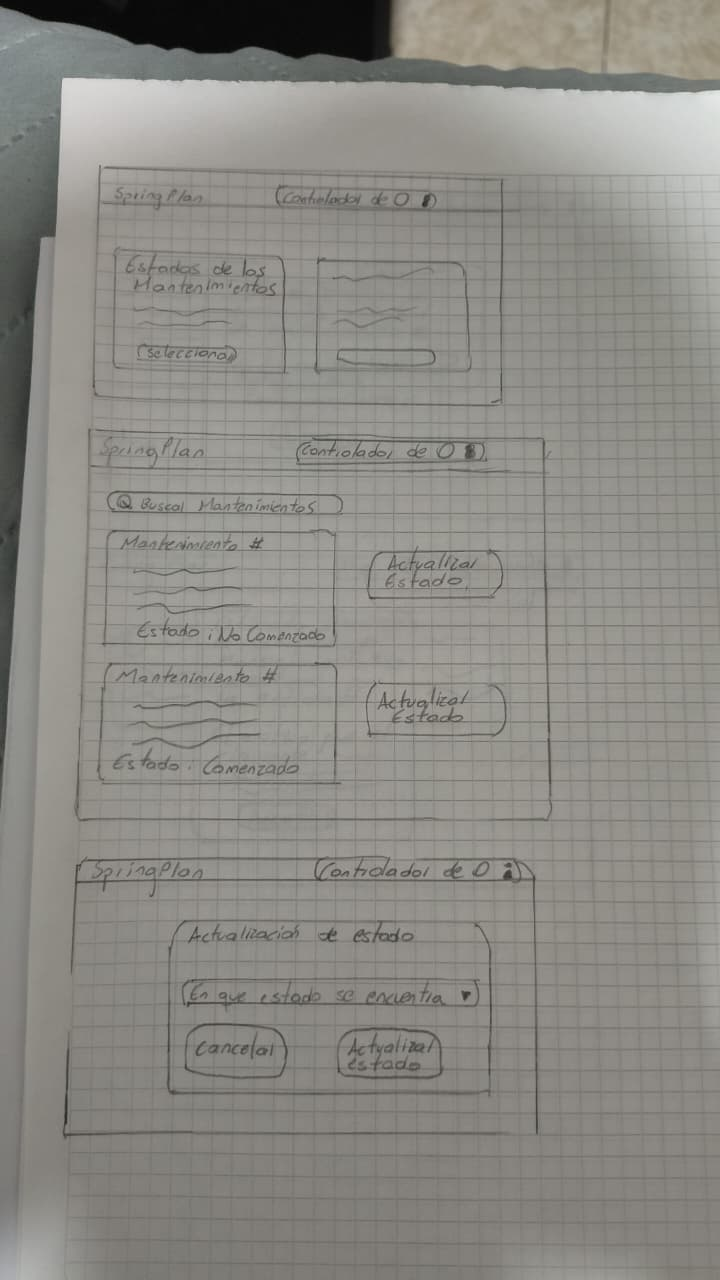 SpringPlan
Controlador de O
Estados de los
Mantenimientos
Selecciona
SpringPlan
Controlador de O
Buscar Mantenimientos
Mantenimiento #
Estado : No Comenzado
Actualizar
Estado
Mantenimiento #
Estado. Comenzado
Actualizar
Estado
SpringPlan
Controlador de O
Actualización de estado
En que estado se encuentra
Cancelar
Actualizar
estado